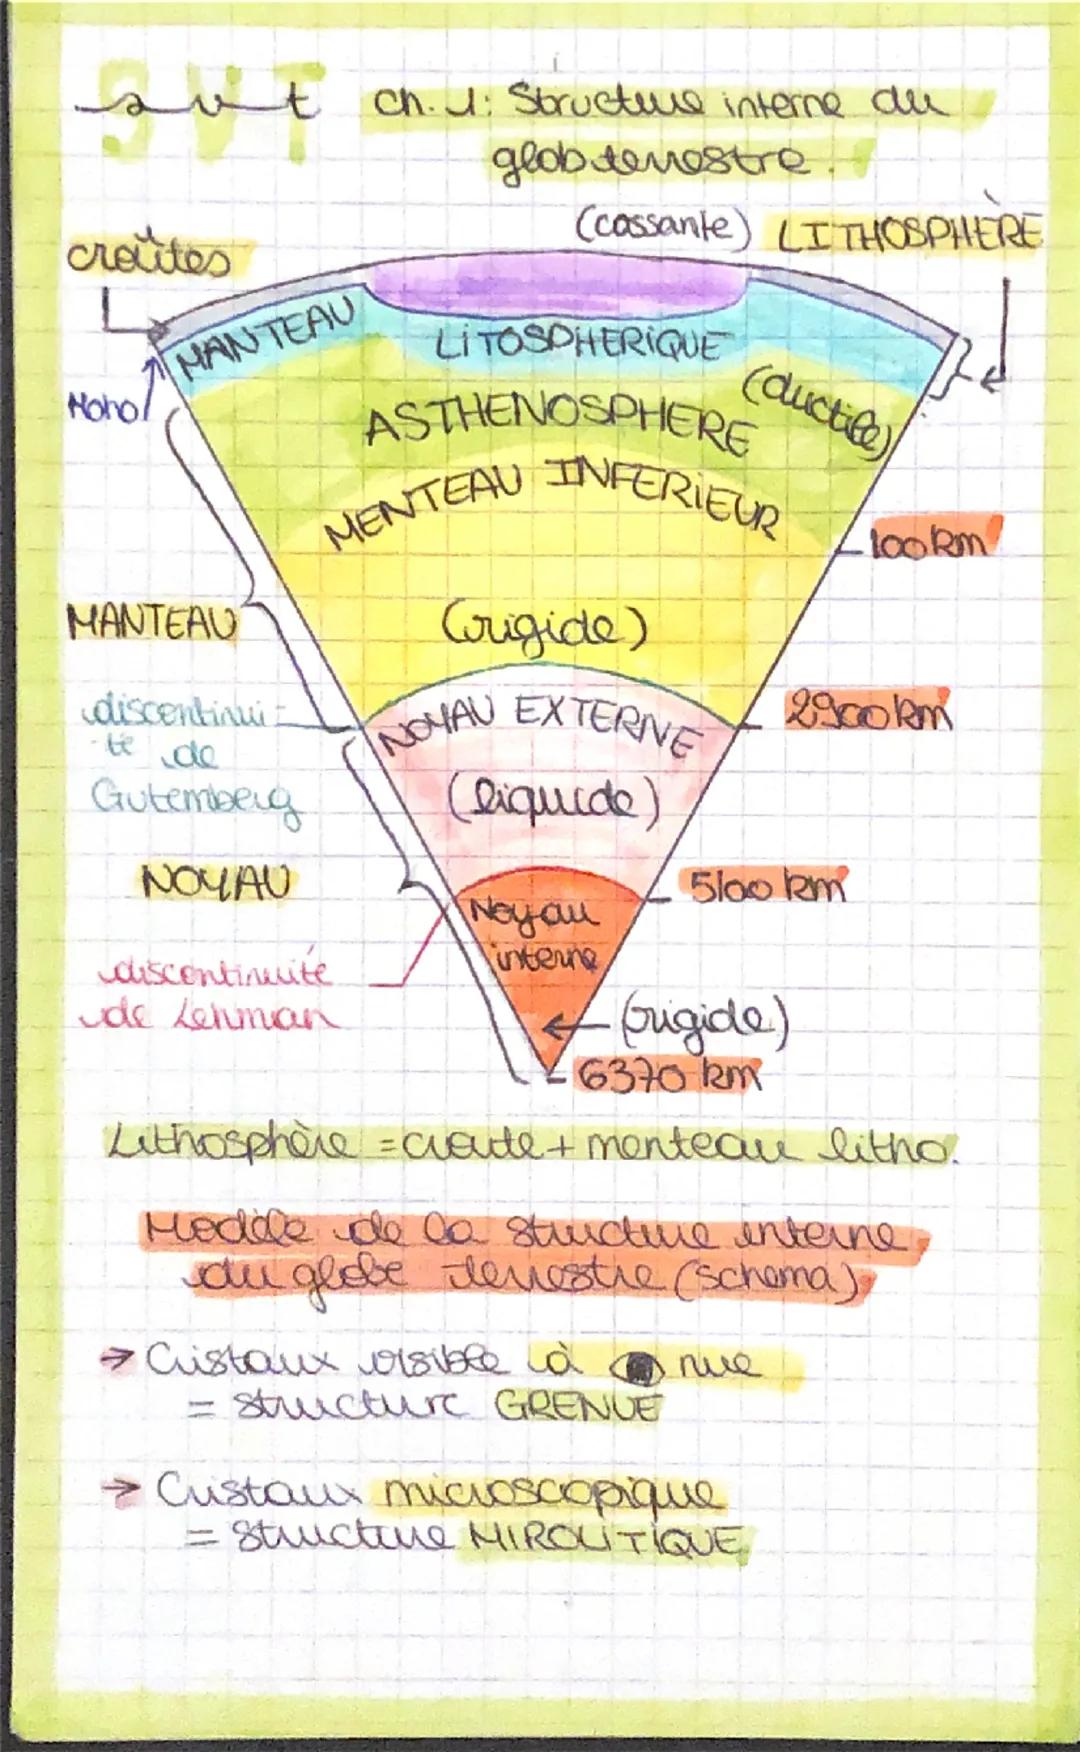 SVT
svt ch. 1: Structure interne du
glob terrestre.
(cassante) LITHOSPHÈRE
croûtes
MANTEAU LiTOSPHERIQUE
Moho
ASTHENOSPHERE (ductile)
MENTEAU INFERiEUR
100 km
MANTEAU
(rigide)
discontinui-
té de
Gutemberg
2900 km
NOYAU EXTERNE
(liquide)
NOYAU
5100 km
Noyau
interne
discontinuité
de Lehman
(rigide)
6370 km
Lithosphère = croute + menteau litho.
Modèle de la structure interne
du globe terrestre (schema)
→ Cristaux visible à nue
= structure GRENUE
→ Cristaux microscopique
= structure MIROLITIQUE